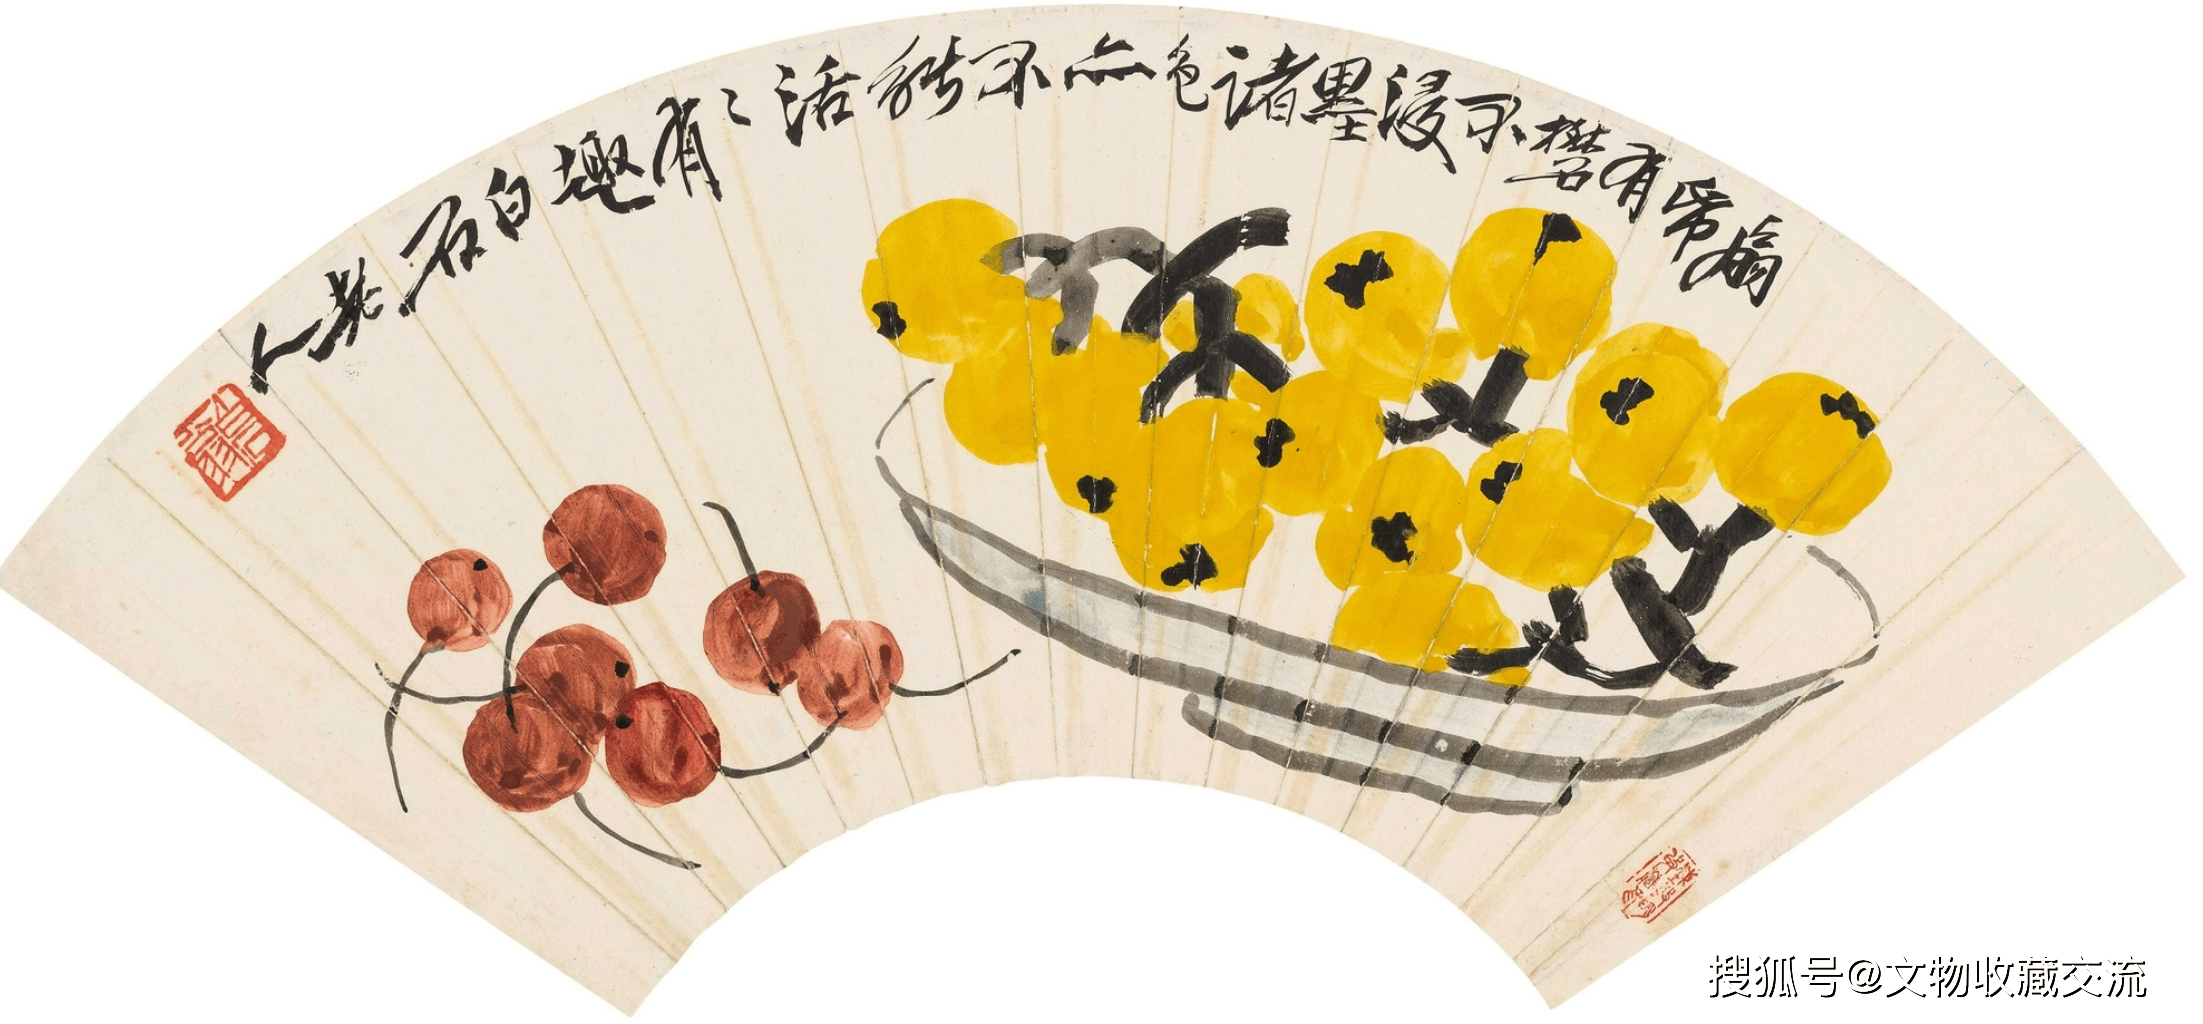 扇帋有礬不浸墨諸色亦不能活〻有趣白石老人
搜狐号@文物收藏交流